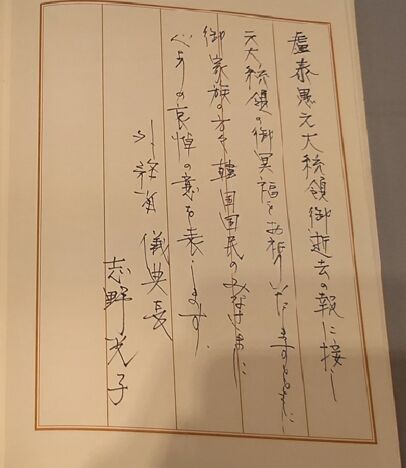 盧泰愚元大統領御逝去の報に接し
元大統領の御冥福をお祈りいたしますとともに
御家族の方々、韓国国民のみなさまに
心よりの哀悼の意を表します。
外務省 儀典長
志野光子